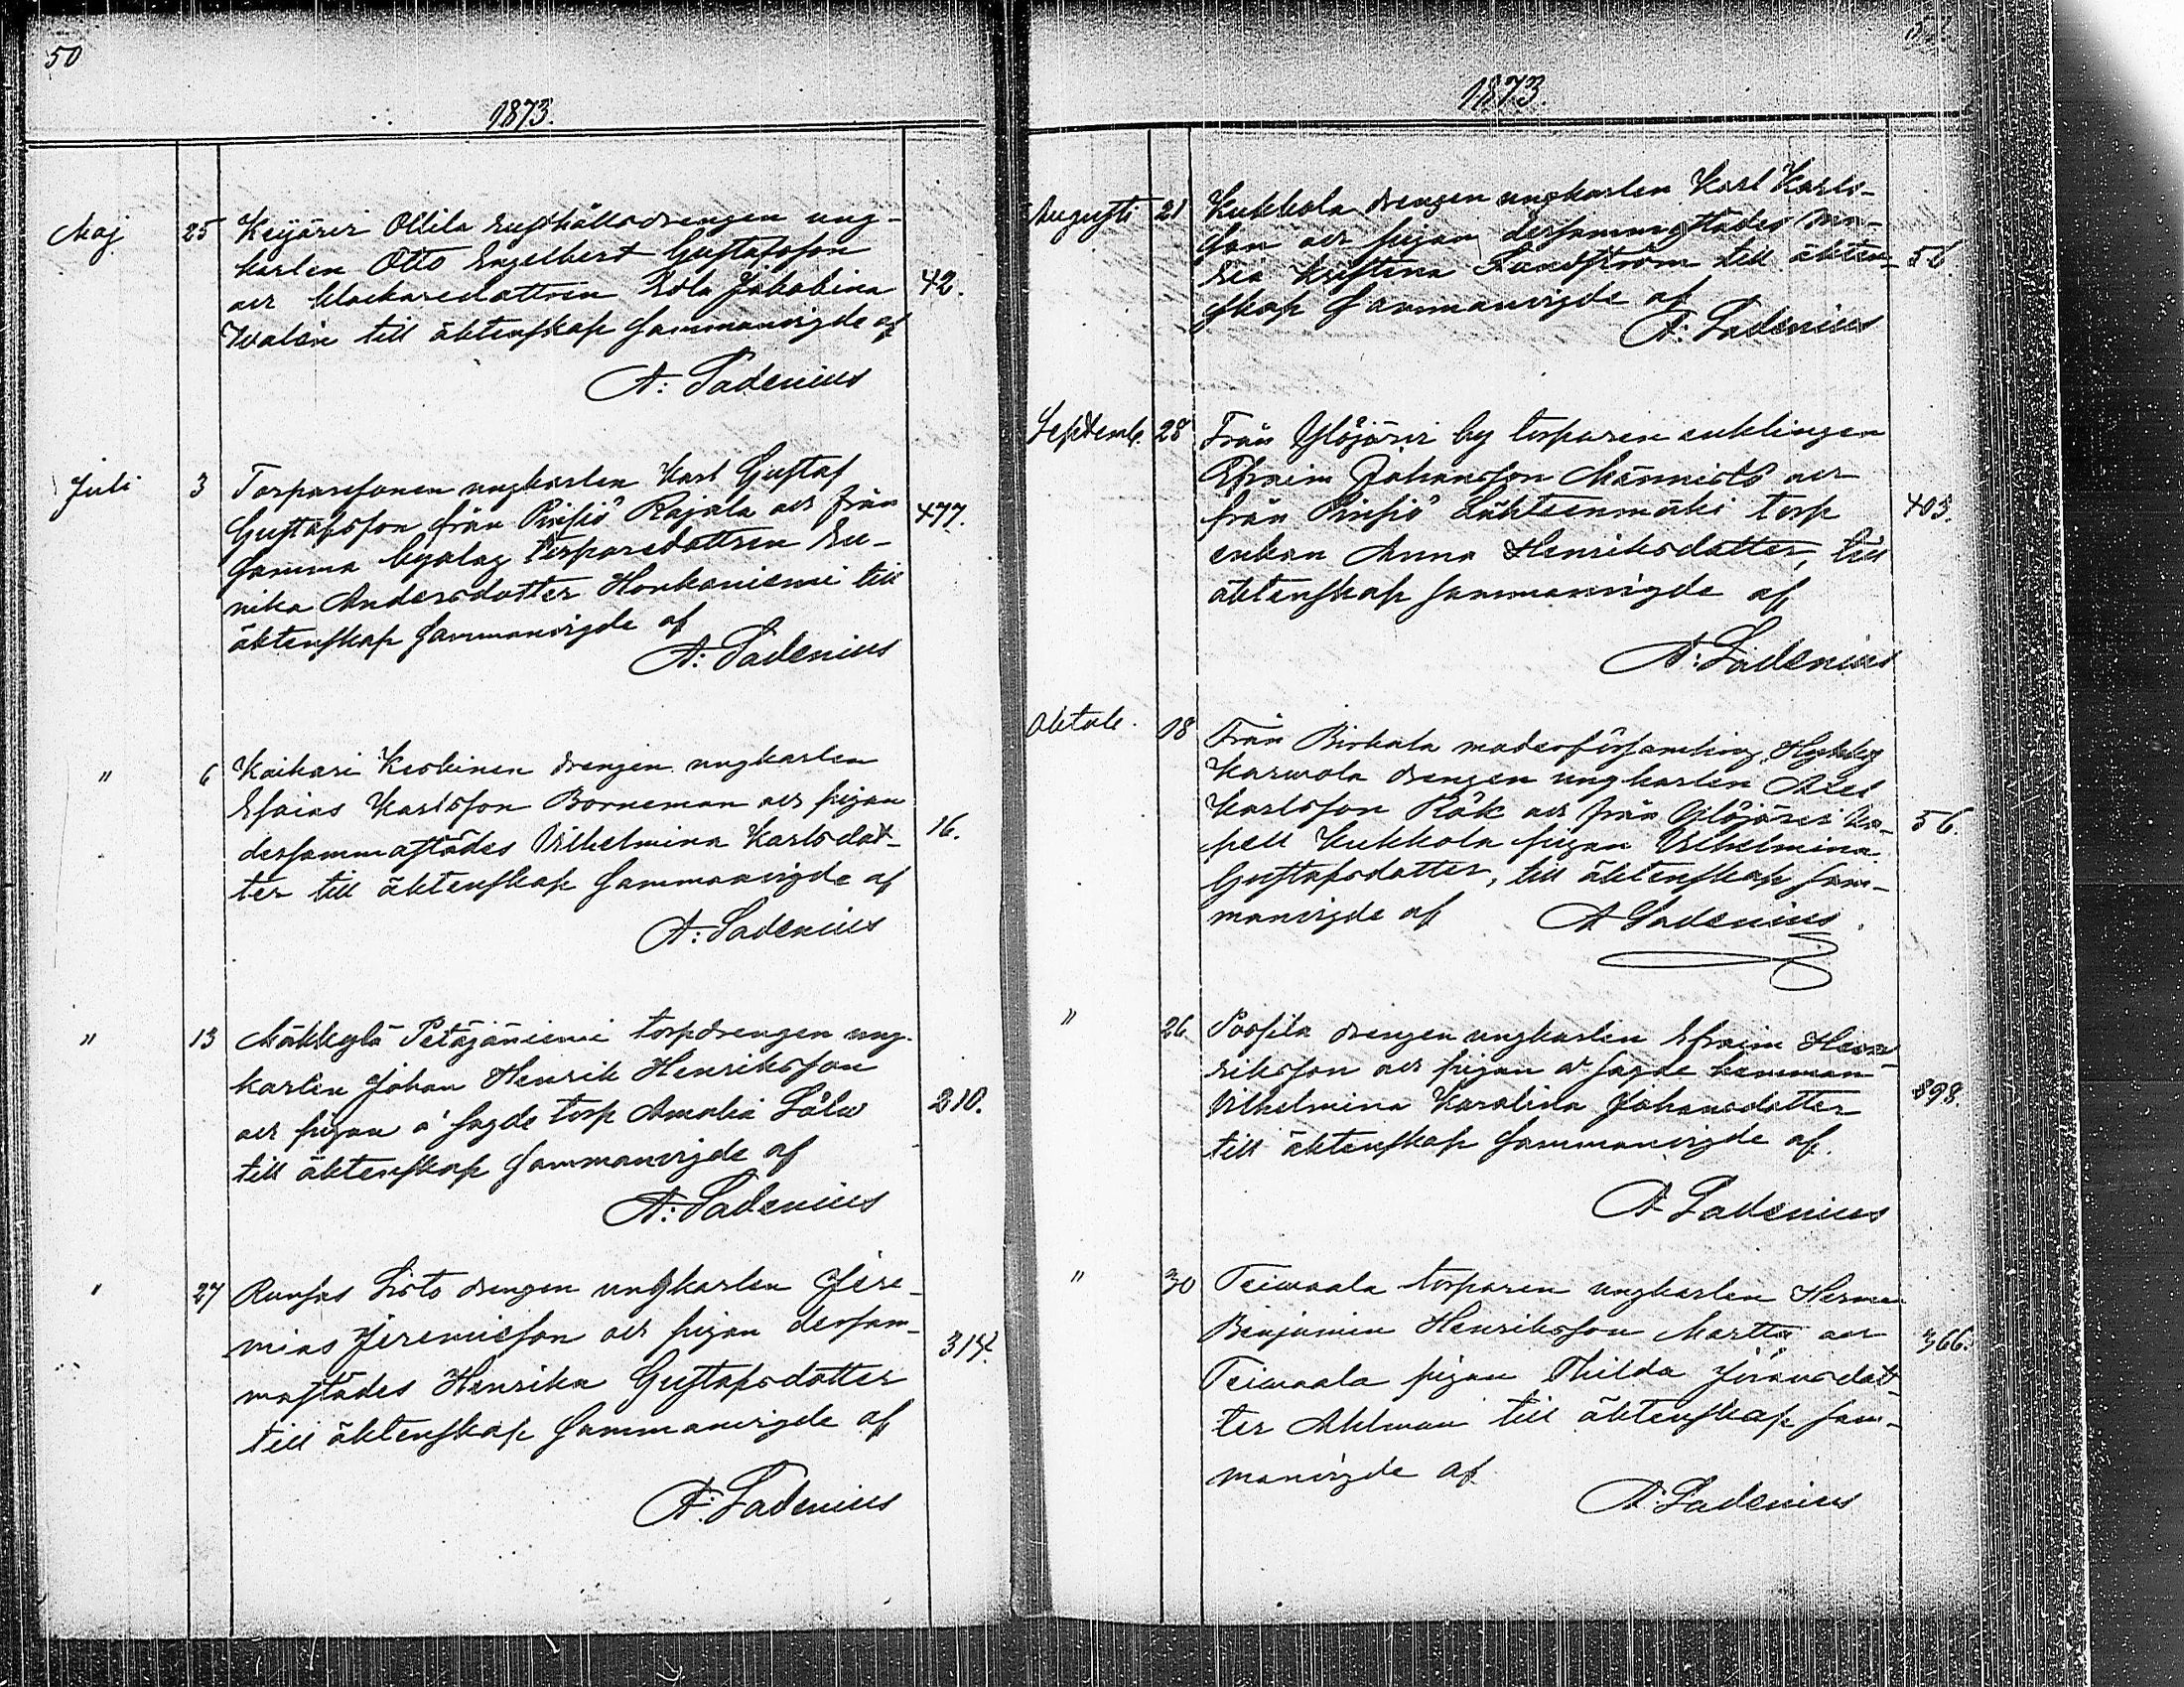 50
1873.
Maj 25 Keijärvi Ollila rusthållsdrengen ung-
karlen Otto Engelbert Gustafsson
och klockaredottren Ida Jakobina 42.
Walén till äktenskap sammanvigde af
A: Ladenius
Juli 3 Torparesonen ungkarlen Karl Gustaf
Gustafsson från Pinsiö Rajala och från 477.
samma byalag torparedottren Eu-
nika Andersdotter Honkaniemi till
äktenskap sammanvigde af
A: Ladenius
" 6 Kaihari Keskinen drengen ungkarlen
Esaias Karlsson Borneman och pigan
dersammastädes Vilhelmina Karlsdot- 16.
ter till äktenskap sammanvigde af
A: Ladenius
" 13 Mäkkylä Petäjäniemi torpdrengen ung-
karlen Johan Henrik Henriksson
och pigan å sagde torp Amalia Lälu 210.
till äktenskap sammanvigde af
A: Ladenius
" 27 Runsas Sisto drengen ungkarlen Jere-
mias Jeremiesson och pigan dersam- 314.
mastädes Henrika Gustafsdotter
till äktenskap sammanvigde af
A: Ladenius
1873.
Augusti 21 Kukkola drengen ungkarlen Karl Karls-
son och pigan dersammastädes Ma-
ria Kristina Sundström till äkten- 56.
skap sammanvigde af
A: Ladenius
Septemb. 28 Från Ylöjärvi by torparen enklingen
Efraim Johansson Männistö och
från Pinsiö Lähteenmäki torp 403.
enkan Anna Henriksdotter, till
äktenskap sammanvigde af
A: Ladenius
Oktob. 18 Från Birkala moderförsamling,
Karwola drengen ungkarlen Axel
Karlsson Rök och från Ylöjärvi ka- 56.
pell Kukkola pigan Vilhelmina
Gustafsdotter, till äktenskap sam-
manvigde af A Ladenius
" 26 Soosila drengen ungkarlen Efraim Hen-
riksson och pigan å sagde hemman 398.
Vilhelmina Karolina Johansdotter
till äktenskap sammanvigde af
A Ladenius
" 30 Teiwaala torparen ungkarlen Herman
Benjamin Henriksson Martta och 366.
Teiwaala pigan Thilda Jöransdot-
ter Ahlman till äktenskap sam-
manvigde af
A. Ladenius